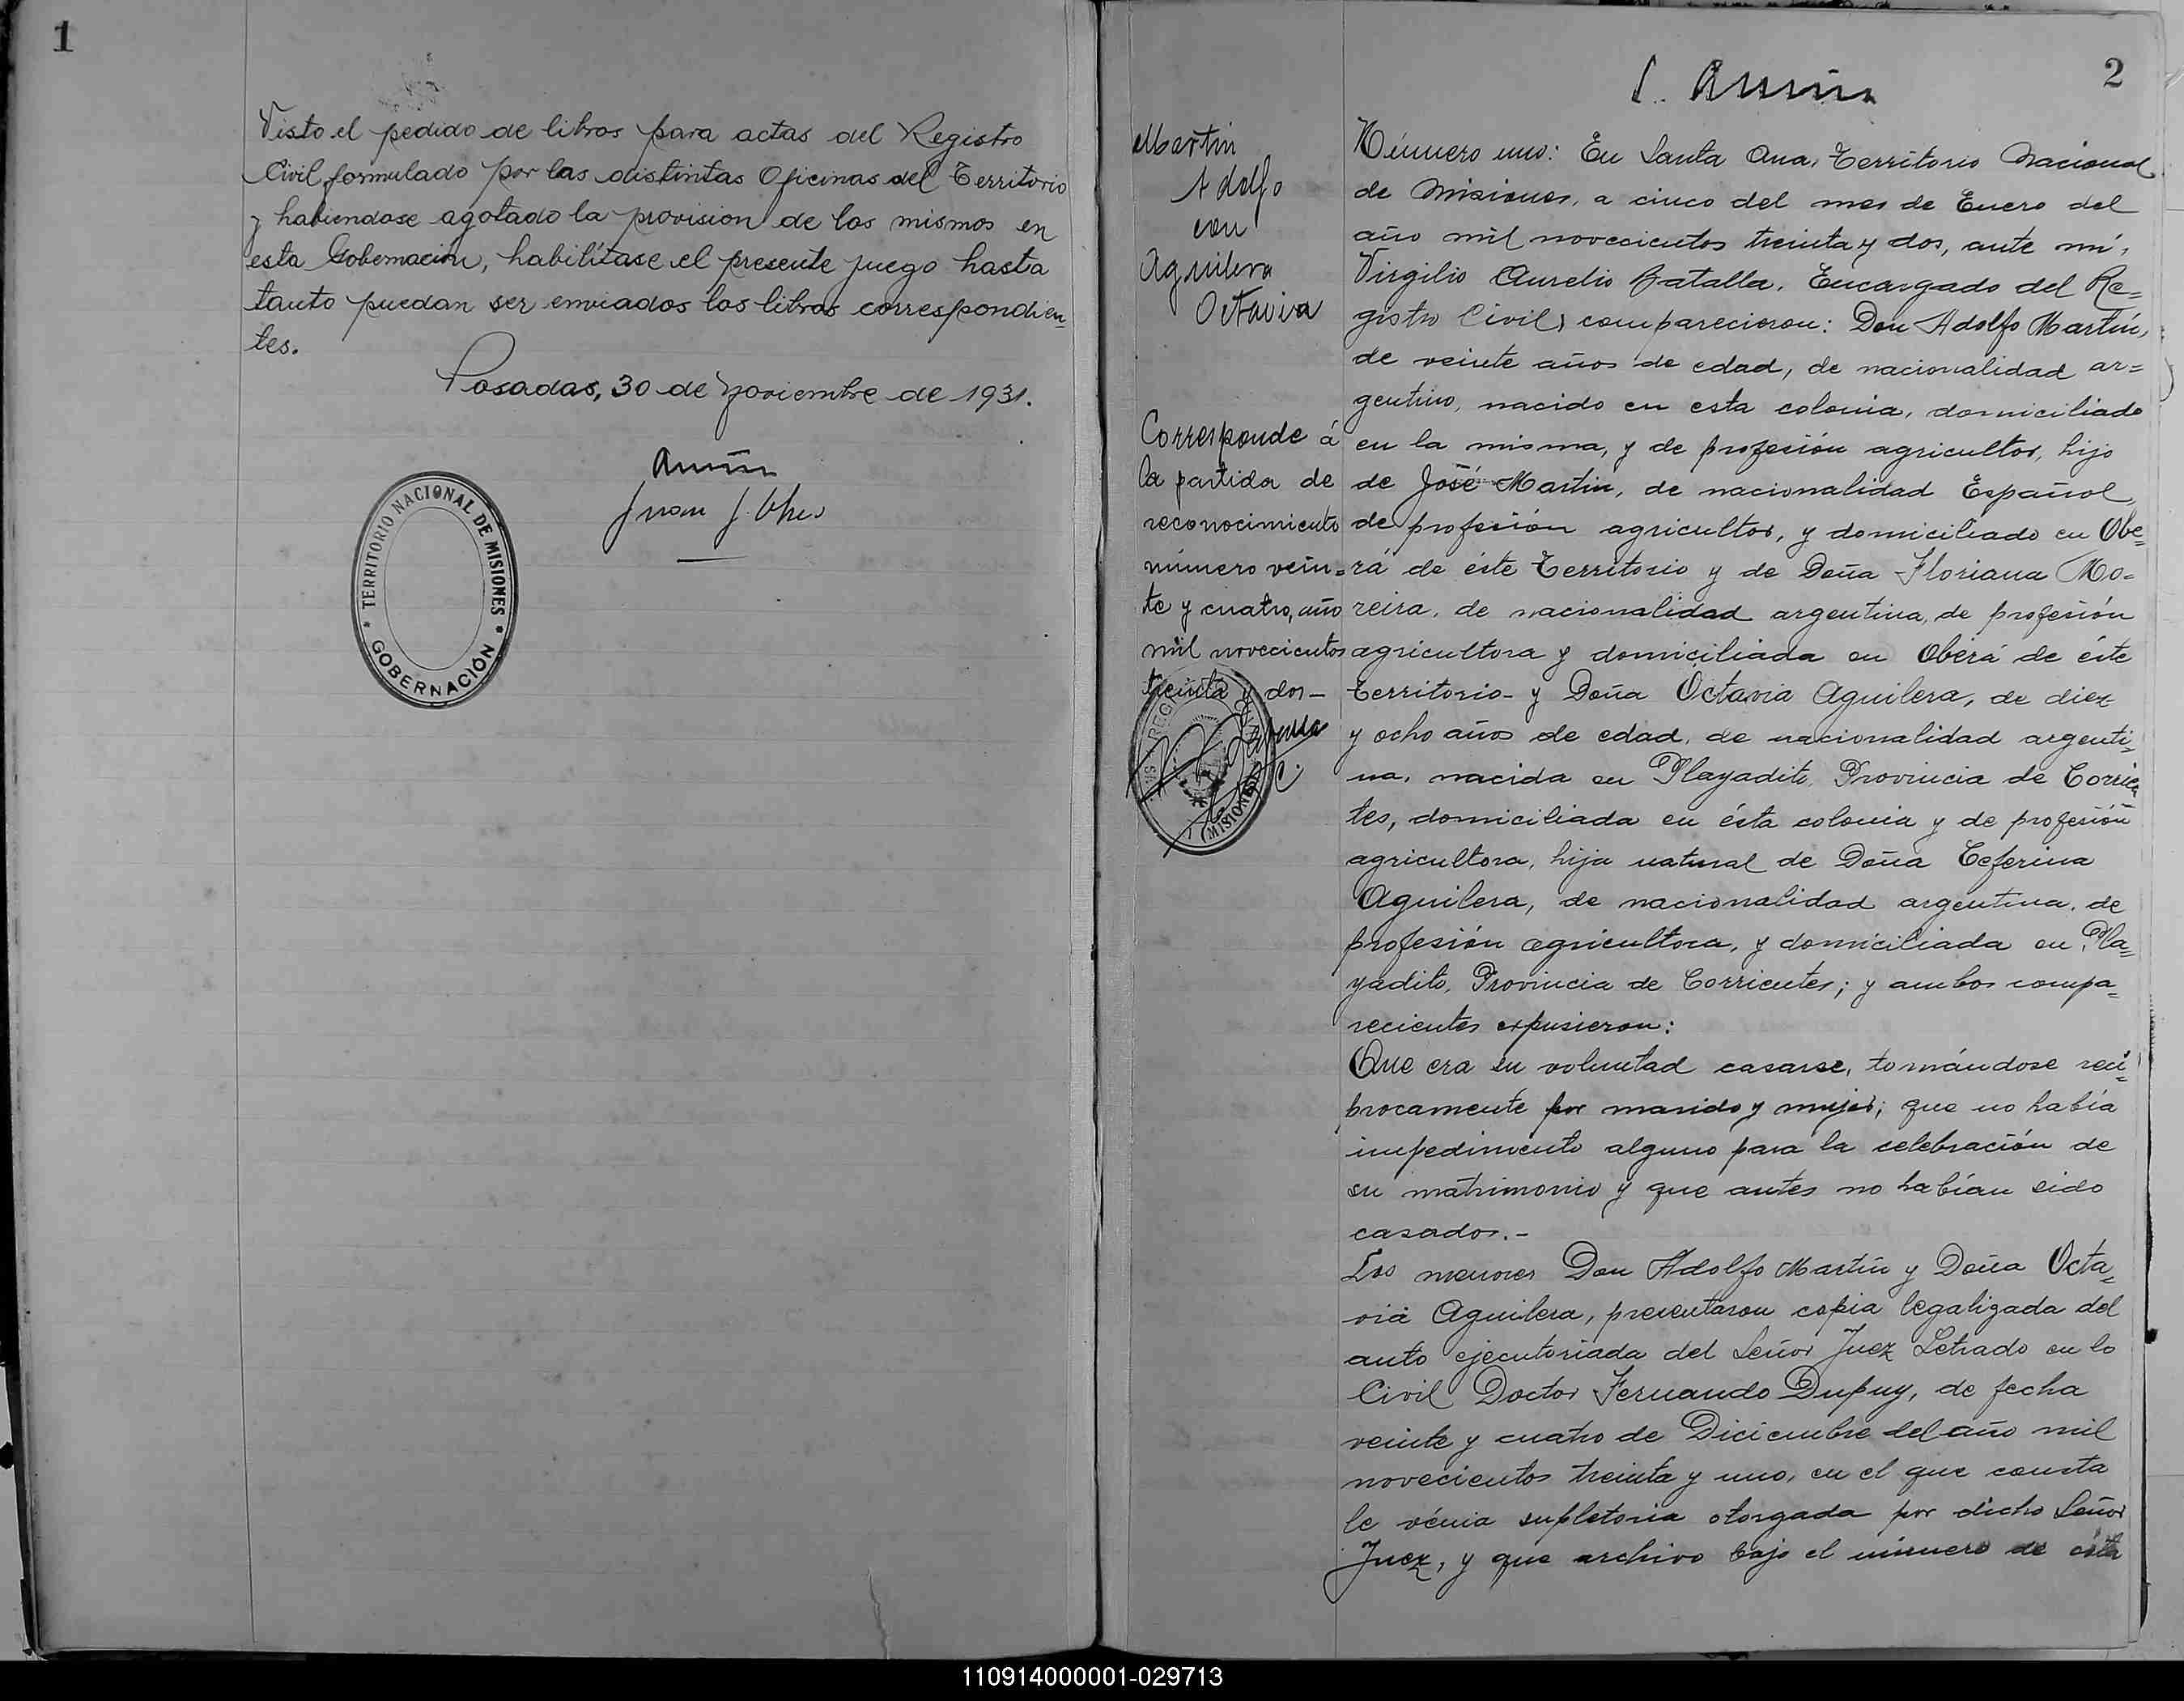 1
Visto el pedido de libros para actas del Registro
Civil formulado por las distintas Oficinas del Territorio
y habiendose agotado la provision de los mismos en
esta Gobernación, habilítase el presente juego hasta
tanto puedan ser enviados los libros correspondien-
tes.
Posadas, 30 de Noviembre de 1931.
Juan J.
* TERRITORIO NACIONAL DE MISIONES *
GOBERNACIÓN
2
Martin
Adolfo
con
Aguilera
Octavia
Corresponde á
la partida de
reconocimiento
número vein=
te y cuatro, año
mil novecientos
treinta y dos-
MISIONES
Número uno: En Santa Ana, Territorio Nacional
de Misiones, a cinco del mes de Enero del
año mil novecientos treinta y dos, ante mí,
Virgilio Aurelio Batalla, Encargado del Re=
gistro Civil, comparecieron: Don Adolfo Martín,
de veinte años de edad, de nacionalidad ar=
gentino, nacido en esta colonia, domiciliado
en la misma, y de profesión agricultor, hijo
de José Martin, de nacionalidad Español,
de profesión agricultor, y domiciliado en Obe=
rá de éste Territorio y de Doña Floriana Mo=
reira, de nacionalidad argentina, de profesión
agricultora y domiciliada en Oberá de éste
Territorio- y Doña Octavia Aguilera, de diez
y ocho años de edad, de nacionalidad argenti=
na, nacida en Playadito, Provincia de Corrien
tes, domiciliada en ésta colonia y de profesión
agricultora, hija natural de Doña Ceferina
Aguilera, de nacionalidad argentina, de
profesión agricultora, y domiciliada en Pla=
yadito, Provincia de Corrientes; y ambos compa=
recientes expusieron:
Que era su voluntad casarse, tomándose recí=
procamente por marido y mujer; que no había
impedimento alguno para la celebración de
su matrimonio y que antes no habían sido
casados.-
Los menores Don Adolfo Martín y Doña Octa=
via Aguilera, presentaron copia legalizada del
auto ejecutoriada del Señor Juez Letrado en lo
Civil Doctor Fernando Dupuy, de fecha
veinte y cuatro de Diciembre del año mil
novecientos treinta y uno, en el que consta
le vénia supletoria otorgada por dicho Señor
Juez, y que archivo bajo el número de esta
110914000001-029713